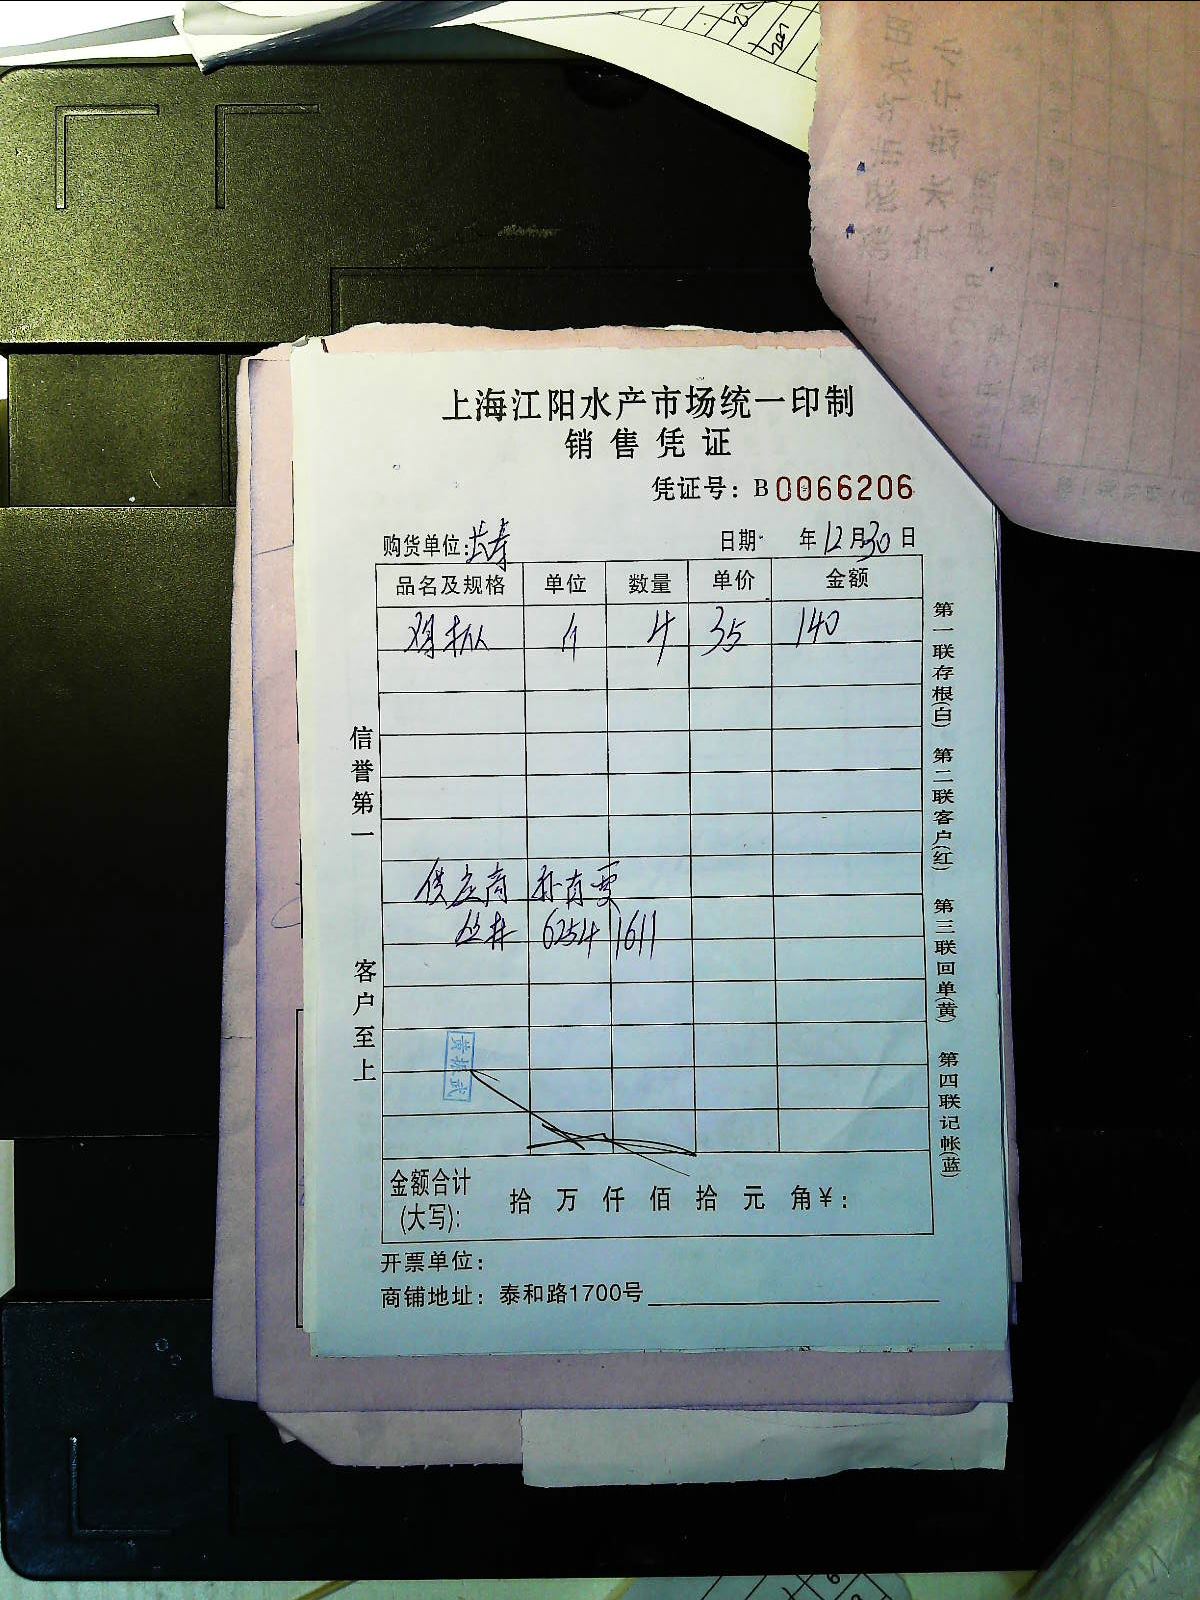 上海江阳水产市场统一印制
销售凭证
凭证号：B0066206
购货单位：长寿 日期 年12月30日
品名及规格 单位 数量 单价 金额
4 35 140
供应商
6254 1611
黄振武
金额合计(大写)： 拾 万 仟 佰 拾 元 角 ￥：
开票单位：
商铺地址：泰和路1700号
信誉第一
客户至上
第一联存根(白) 第二联客户(红) 第三联回单(黄) 第四联记帐(蓝)